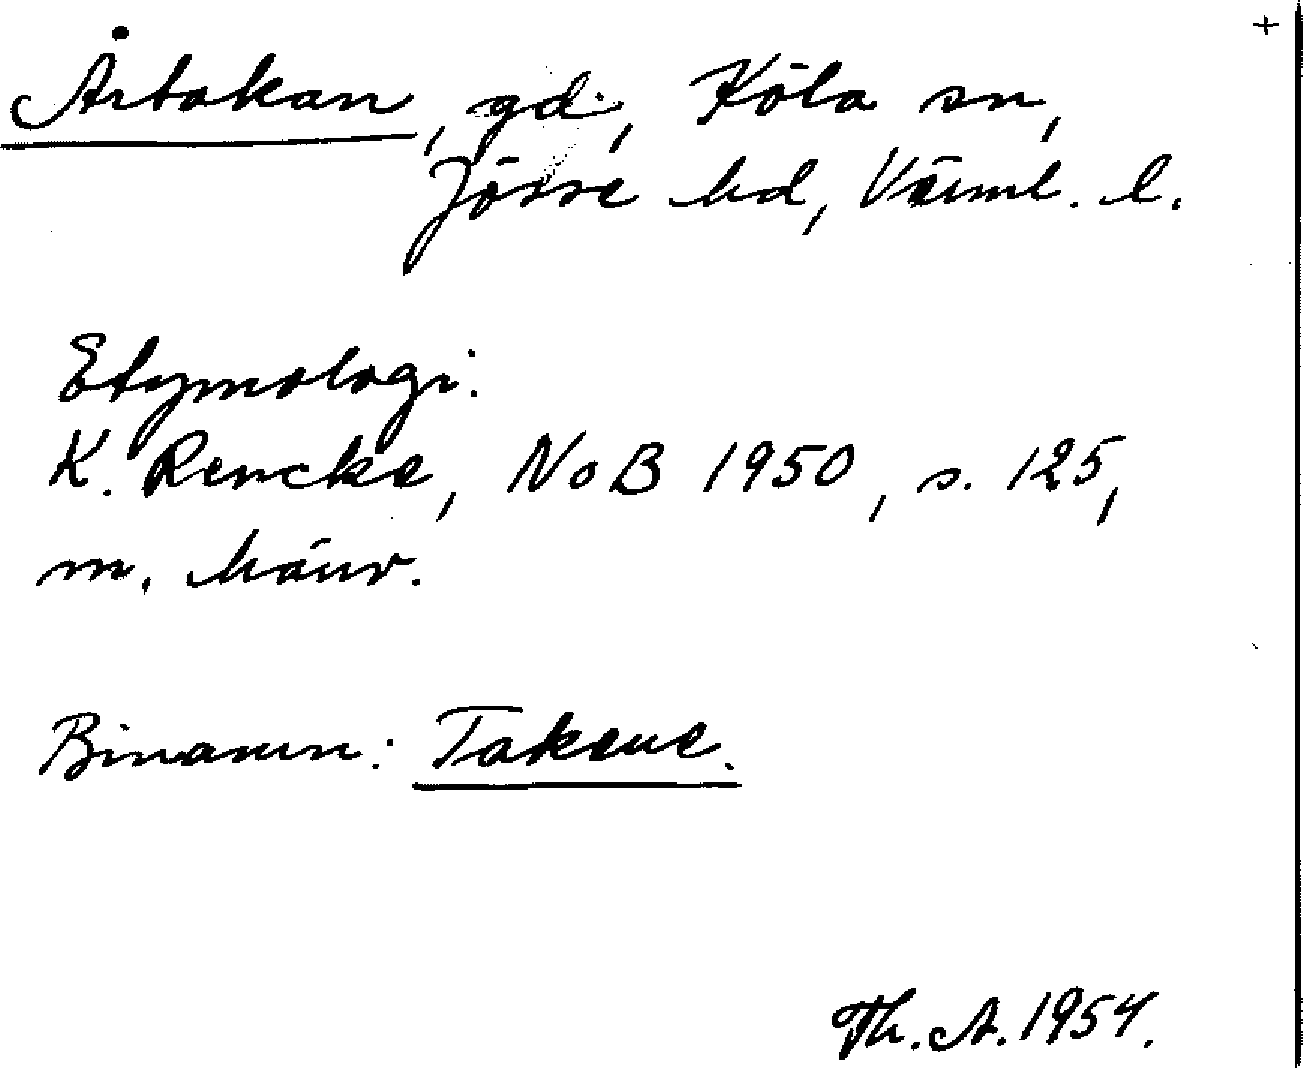 +
Årtakan, gd, Köla sn,
Jösse hd, Värml. l.
Etymologi:
K. Rencke, NoB 1950, s. 125,
m. hänv.
Binamn: Takene.
Th. A. 1954.